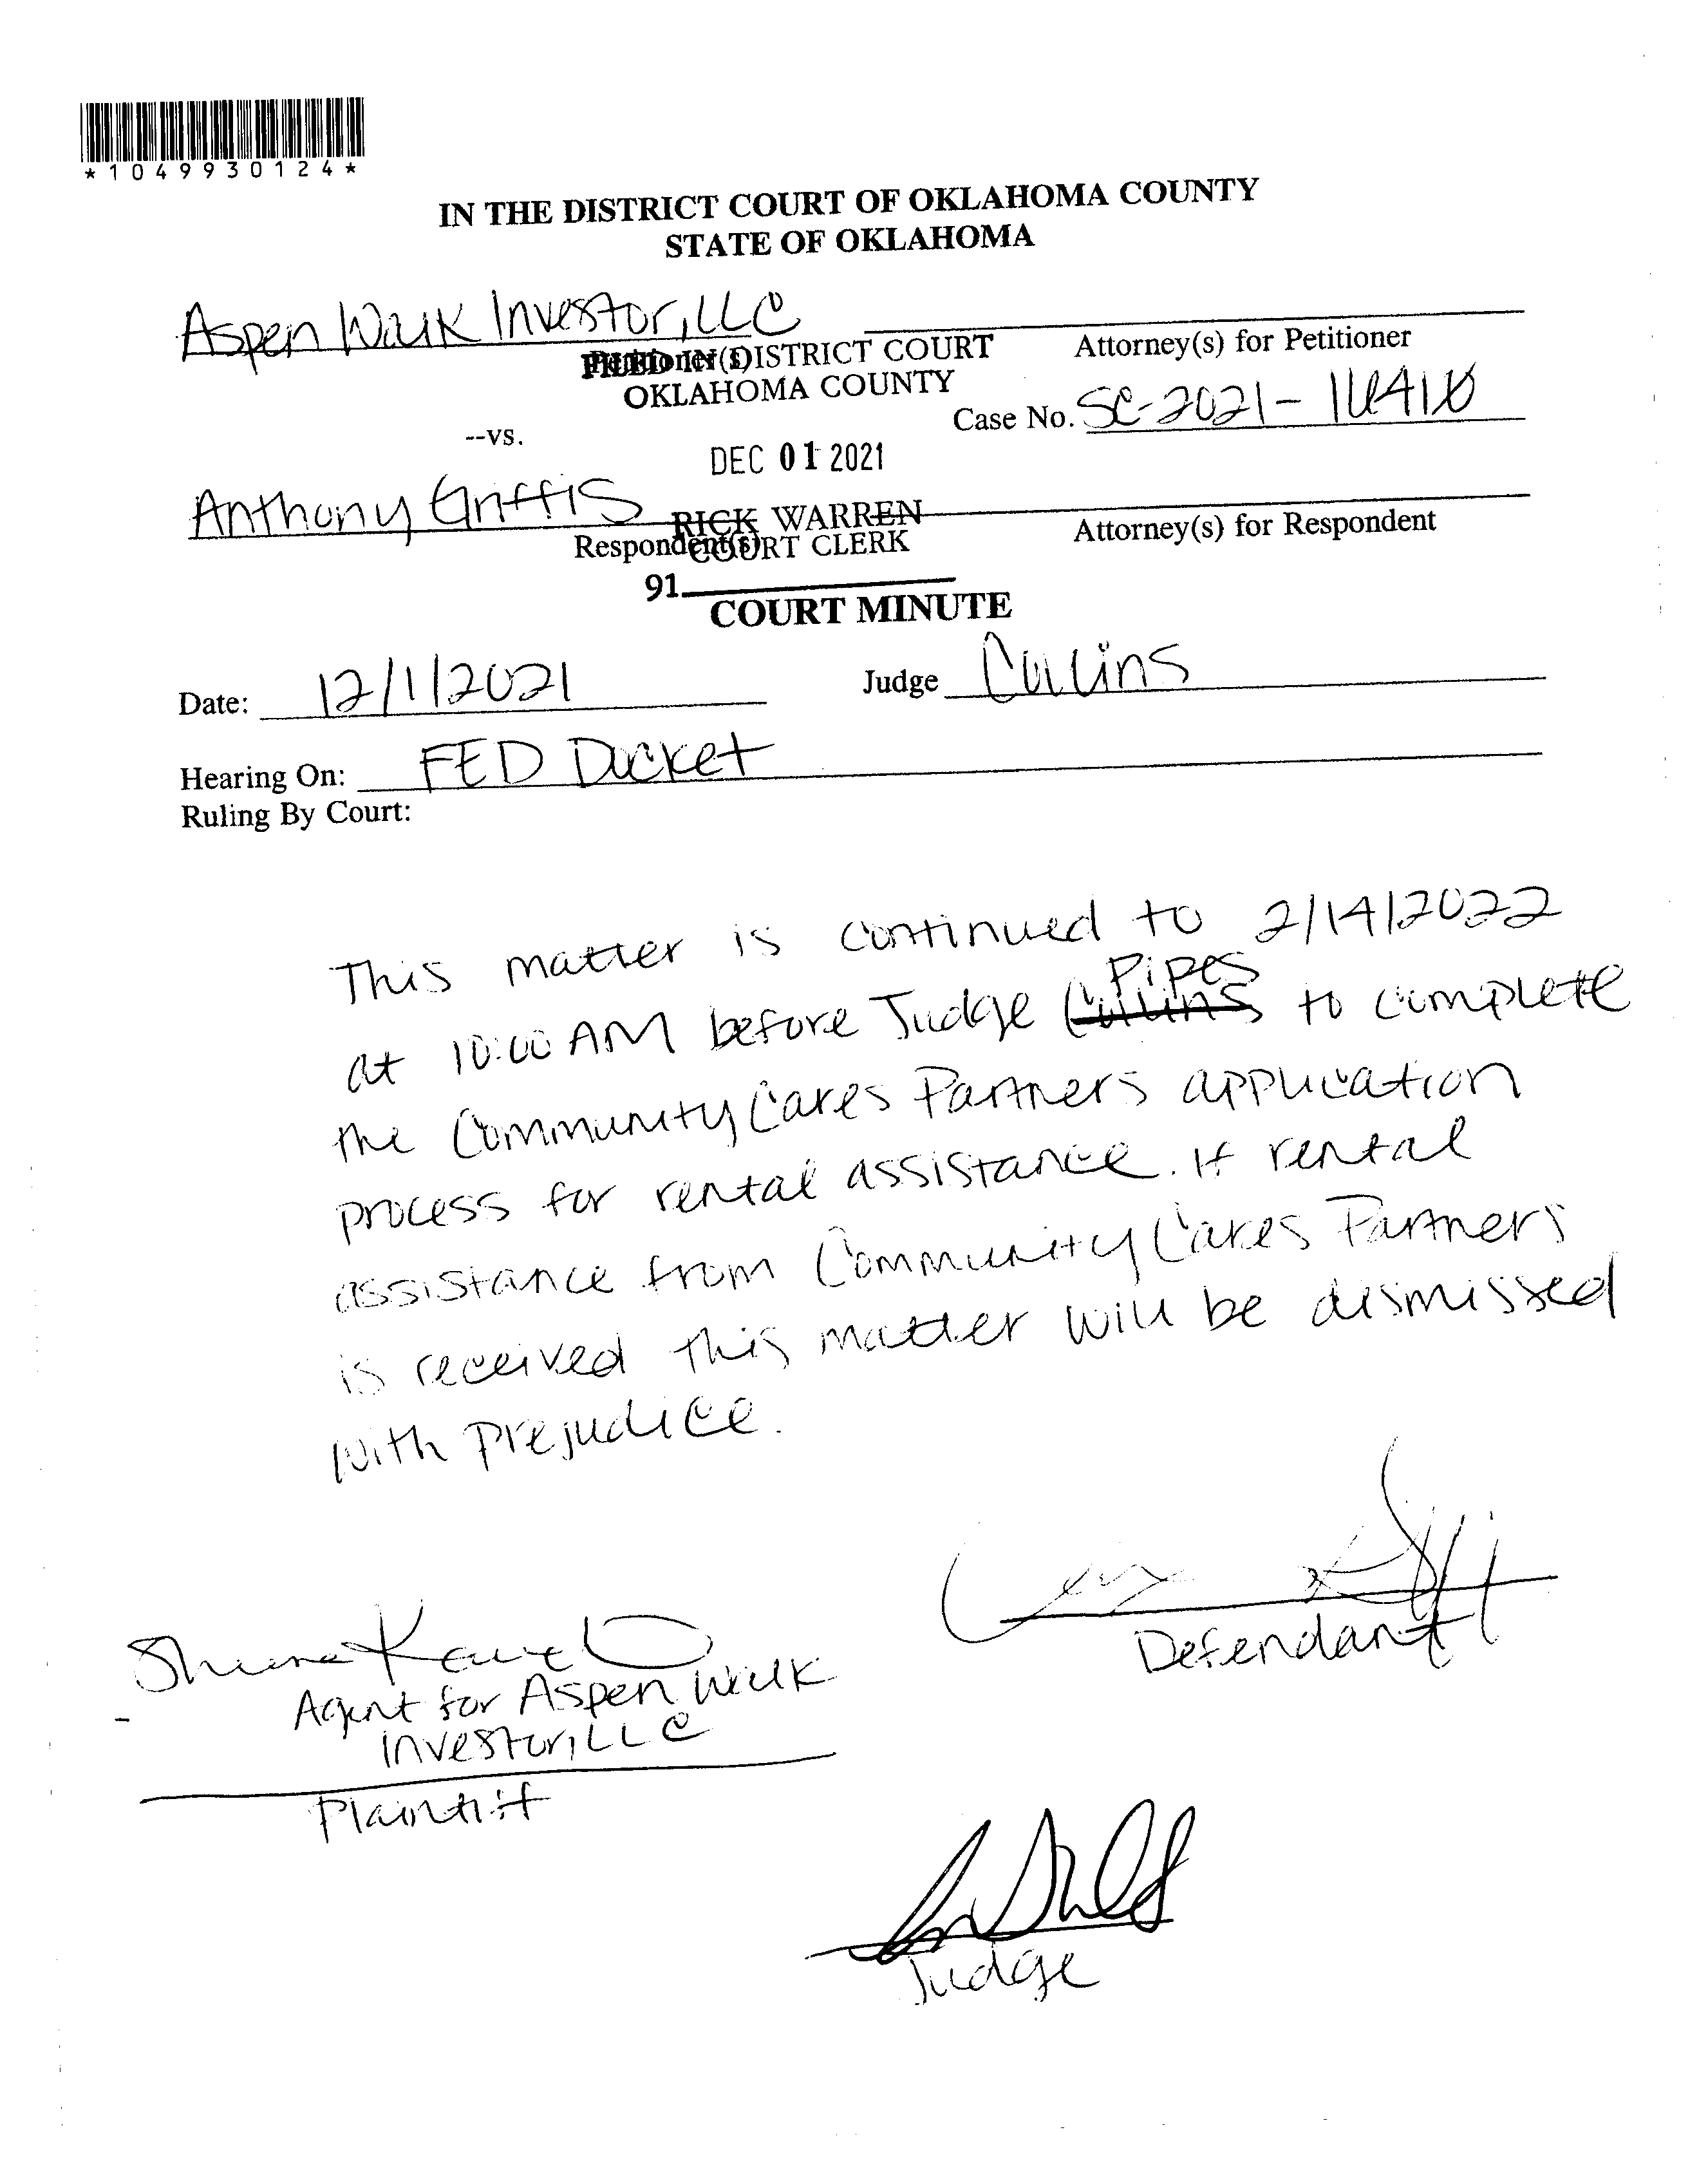 *1049930124*
IN THE DISTRICT COURT OF OKLAHOMA COUNTY
STATE OF OKLAHOMA
Aspen Walk Investor, LLC
Petitioner(s)
Attorney(s) for Petitioner
FILED IN DISTRICT COURT
OKLAHOMA COUNTY
Case No. SC-2021-
--vs.
DEC 01 2021
Anthony Griffis
RICK WARREN
COURT CLERK
Respondent(s)
Attorney(s) for Respondent
91
COURT MINUTE
Date: 12/1/2021 Judge Collins
Hearing On: FED Docket
Ruling By Court:
This matter is continued to 2/14/2022
Pipes
at 10:00 AM before Judge Collins to complete
the Community Cares Partners application
process for rental assistance. If rental
assistance from Community Cares Partners
is received this matter will be dismissed
with prejudice.
Defendant
Agent for Aspen Walk
Investor, LLC
Plaintiff
Judge